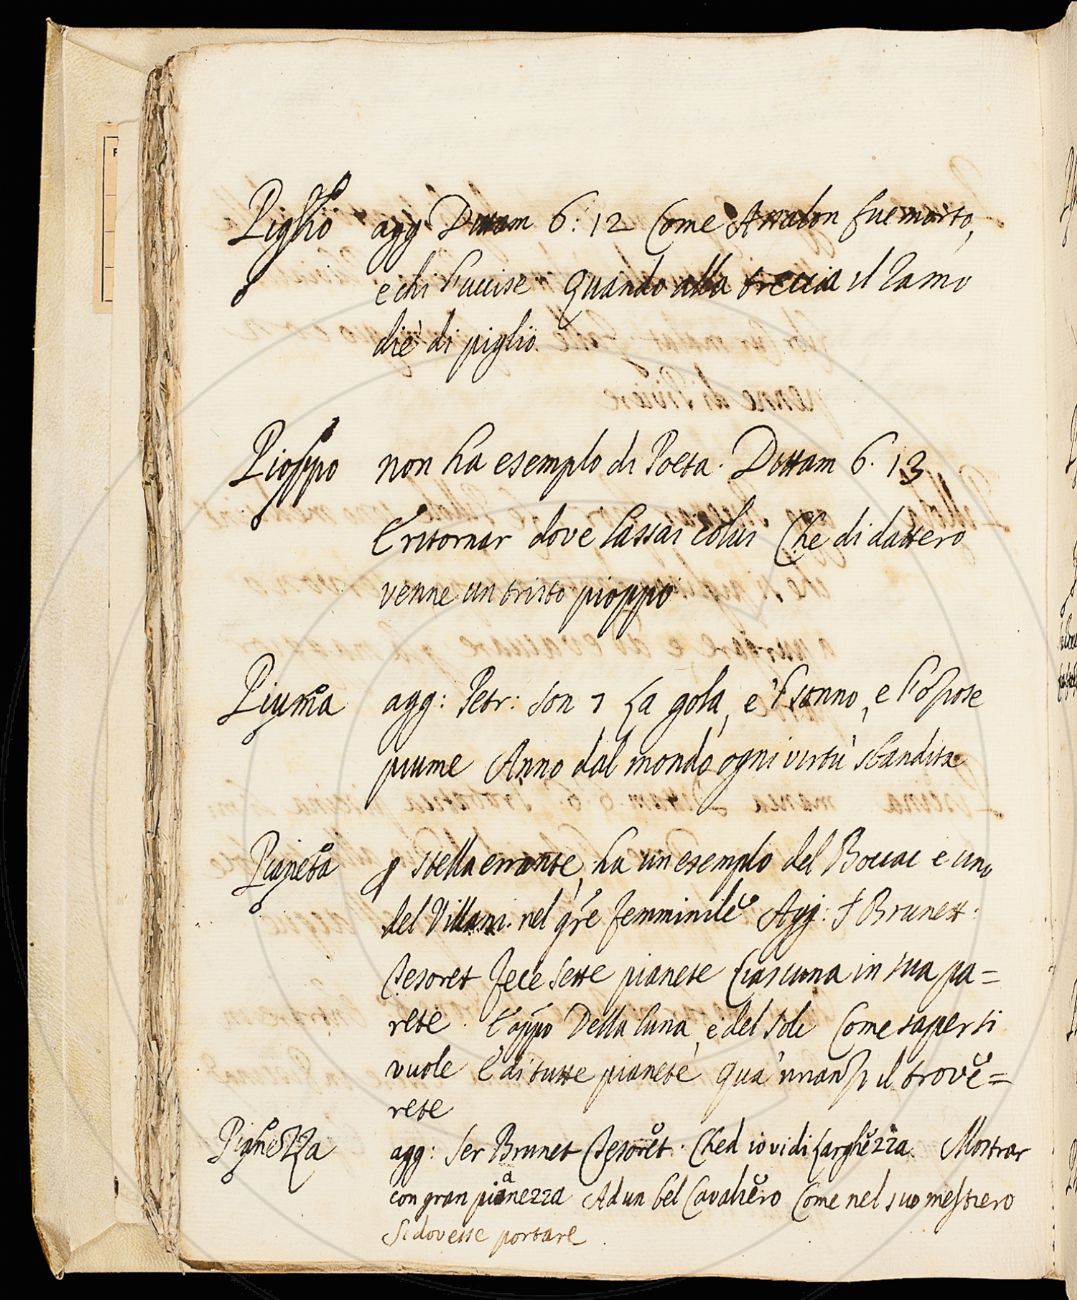 Piglio agg. Dittam 6. 12 Come Assalon fue morto,
e chi l'uccise Quando alla treccia il ramo
diè di piglio.
Pioppo non ha esemplo di Poeta. Dittam 6. 13
E ritornar dove lassai colui Che di dattero
venne un tristo pioppo
Piuma agg: Petr: Son 7 La gola, e'l sonno, e l'oziose
piume Anno dal mondo ogni virtù sbandita
Pianeta p stella errante, ha un esemplo del Boccac e uno
del Villani. nel gr̃e femminile Agg: S Brunett.
Tesoret Fece sette pianete Ciascuna in sua pa=
rete. E app̃o Della luna, e del sole Come saper si
vuole E di tutte pianete qua 'nnanzi il trove=
rete
Pianezza agg: Ser Brunet Tesoret. Ched io vidi Larghezza Mostrar
con gran pianezza Ad un bel Cavaliero Come nel suo mestiero
Si dovesse portare